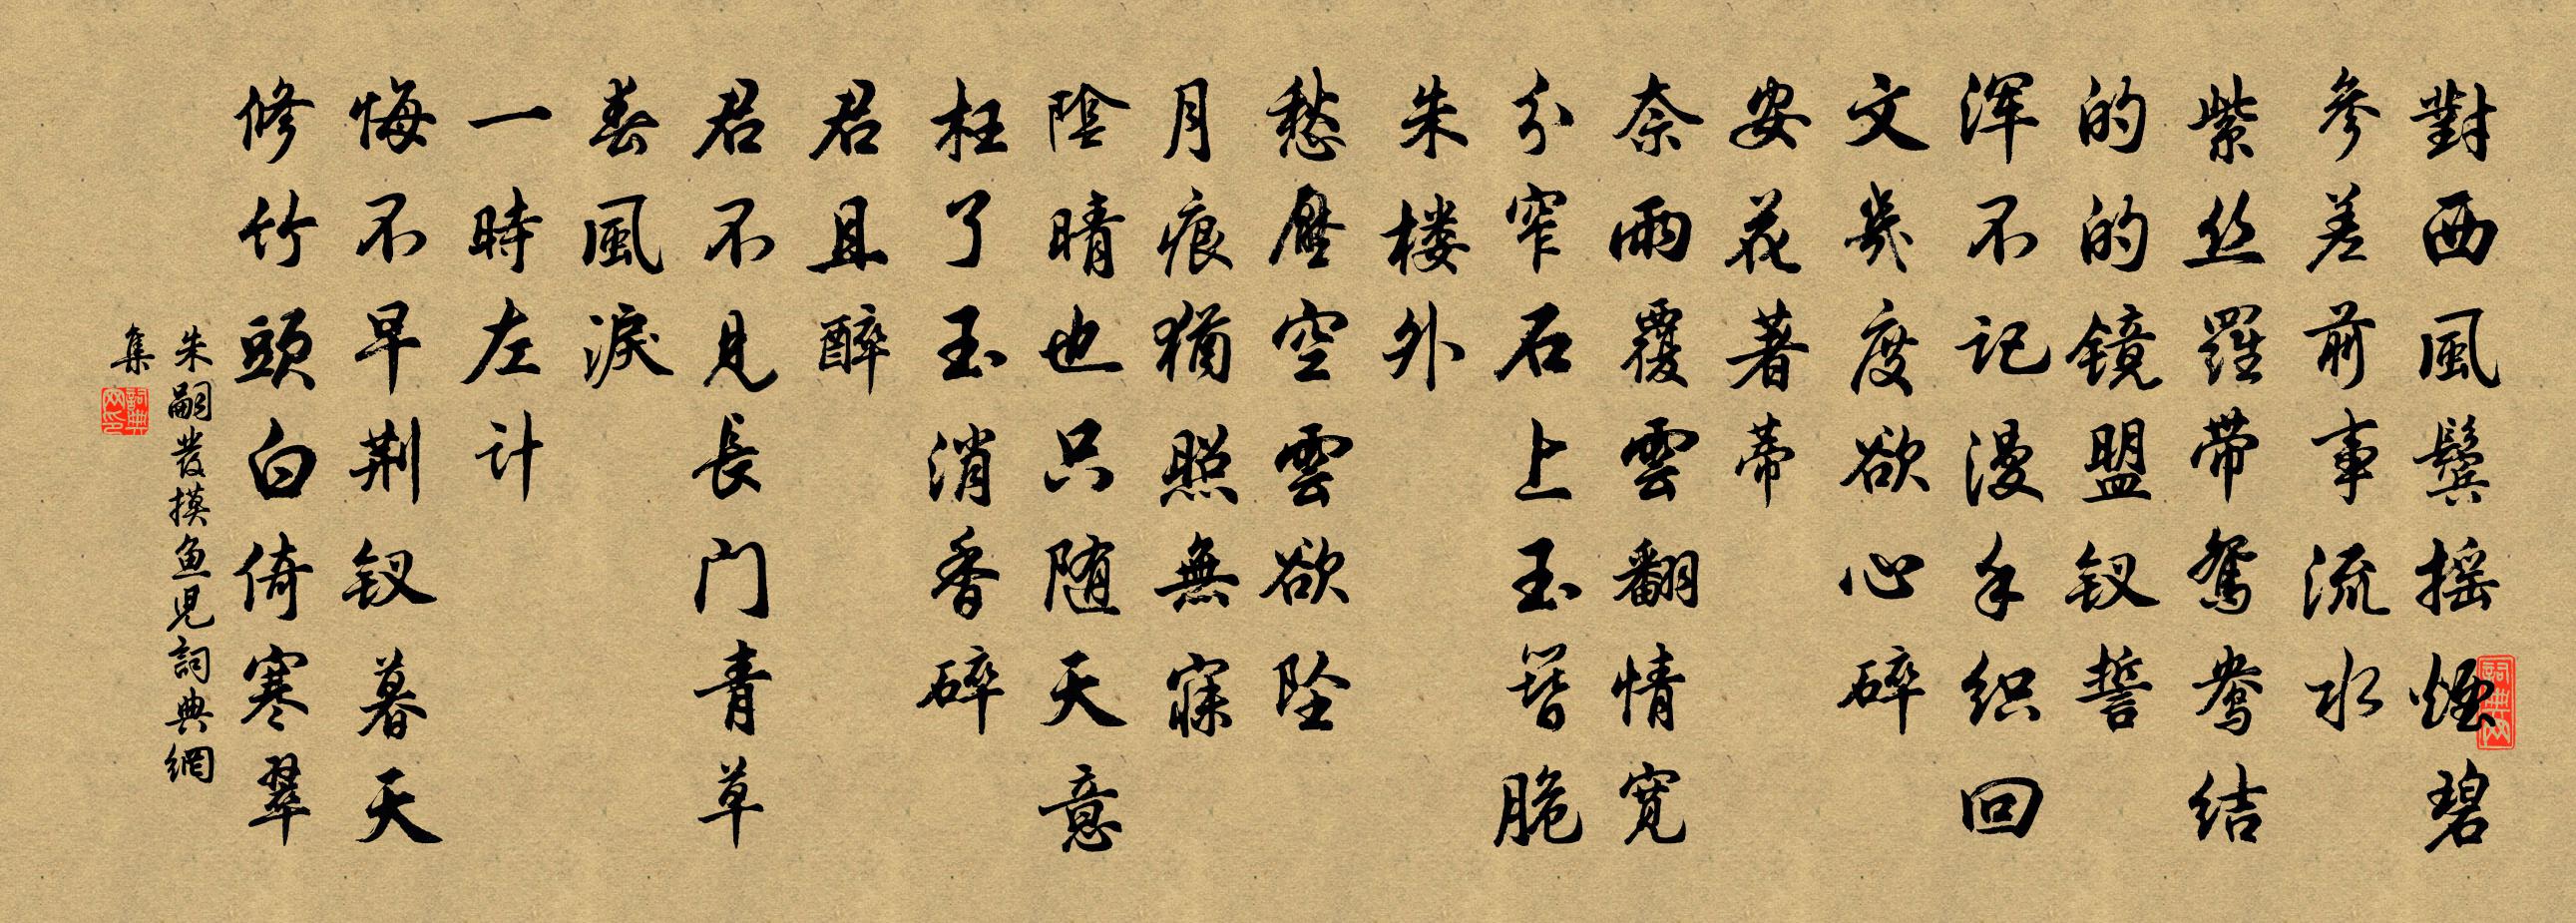 對西風鬓摇煙碧
參差前事流水
紫丝羅带鴛鴦结
的的镜盟钗誓
浑不记漫手织回
文幾度欲心碎
安花著蒂
奈雨覆雲翻情宽
分窄石上玉簪脆
朱楼外
愁壓空雲欲坠
月痕猶照無寐
陰晴也只随天意
枉了玉消香碎
君且醉
君不見長门青草
春風淚
一時左计
悔不早荆钗暮天
修竹頭白倚寒翠
朱嗣發摸鱼兒詞典網
集
詞典网
詞典网印